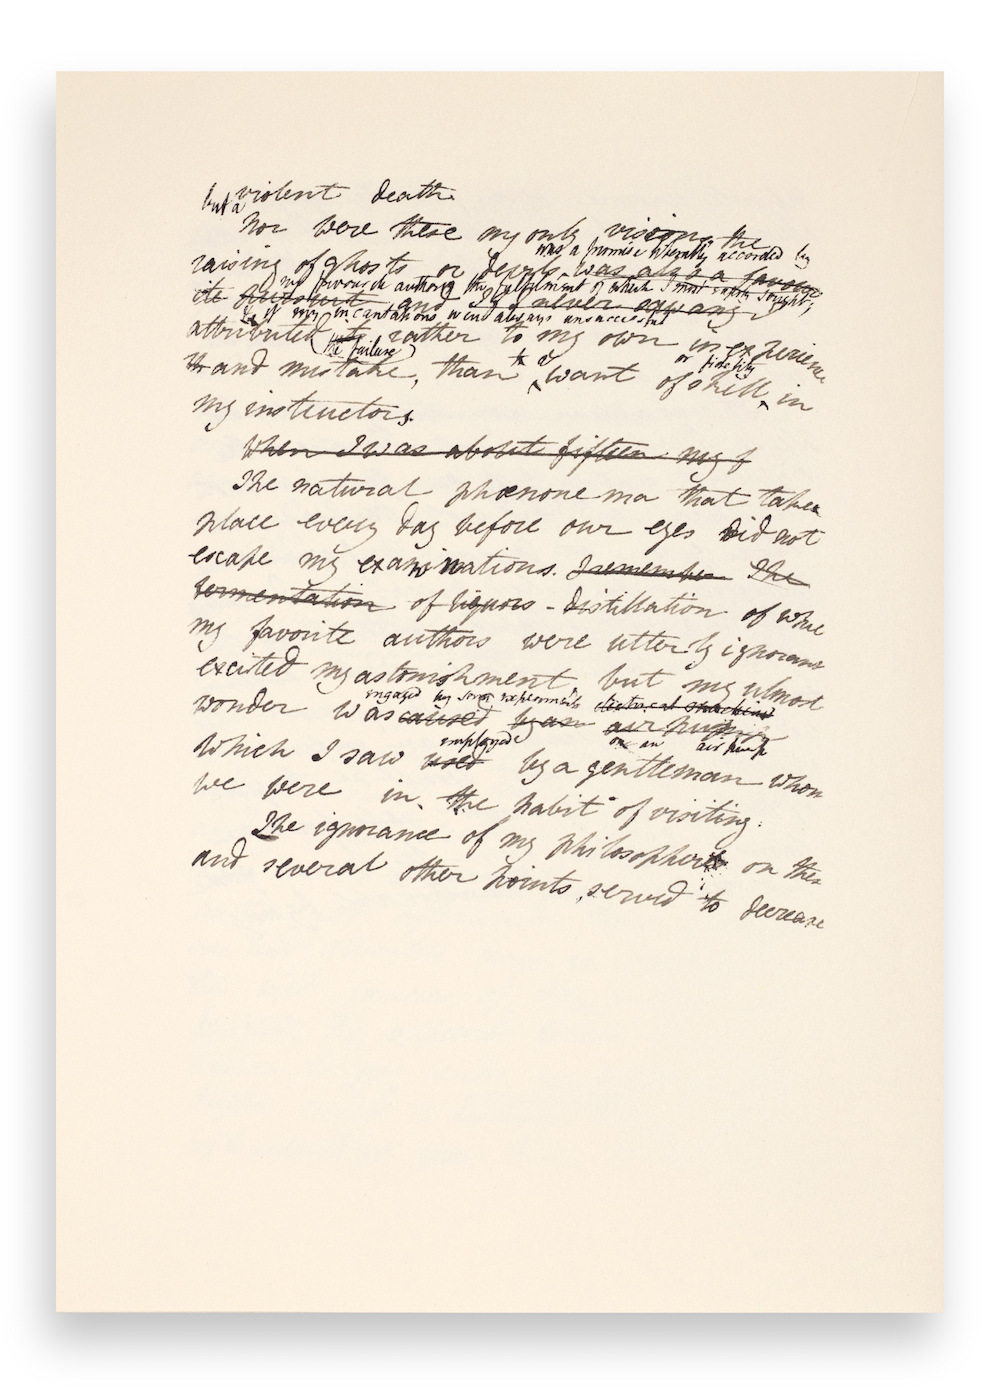 but a violent death.
Nor were these my only visions, the
was a promise liberally accorded by
raising of ghosts or devils was also a favour
my favourite authors the fulfilment of which I most eagerly sought;
ite pursuit and if I never saw any
& if my incantations were always unsuccessful
attributed to rather to my own inexperience
the failure
and mistake, than to a want of skill or fidelity in
my instructors.
When I was about fifteen my f
The natural phœnonema that takes
place every day before our eyes did not
escape my examinations. I remember The
fermentation of liquors - distillation of whic
my favorite authors were utterly ignorant
excited my astonishment, but my utmost
engaged by some experiments electrical machine
wonder was caused by an air pump
employed on an air pump
which I saw used by a gentleman whom
we were in the habit of visiting.
The ignorance of my philosophers on these
and several other points, served to decrease